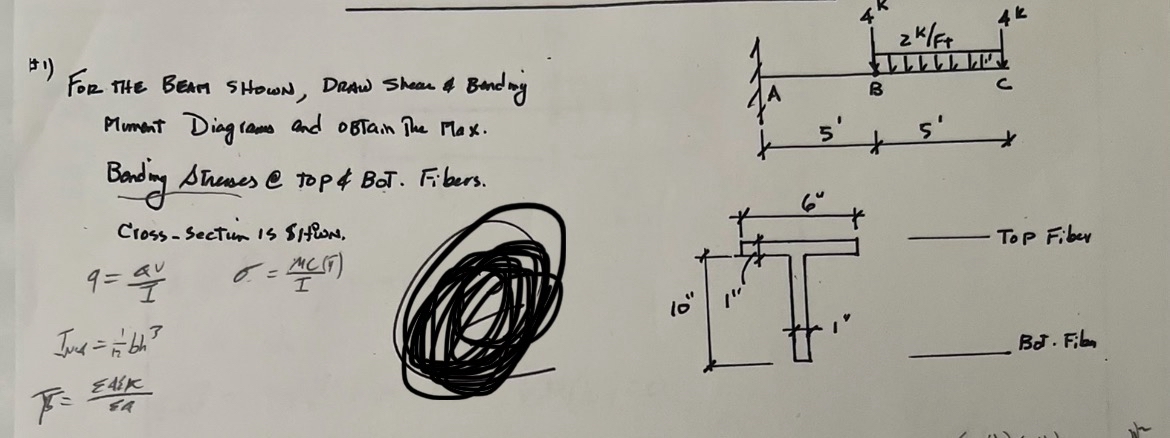 #1) FOR THE BEAM SHOWN, DRAW Shear & Bending
Moment Diagrams and OBTAIN The Max.
Bending Stresses @ TOP & BOT. Fibers.
Cross-section is SHOWN.
q = QV/I σ = MC(ȳ)/I
= 1/12 bh³
4ᴷ 4ᴷ
2 ᴷ/Ft
A B C
5' 5'
6"
TOP Fiber
10" 1" 1"
BOT. Fiber